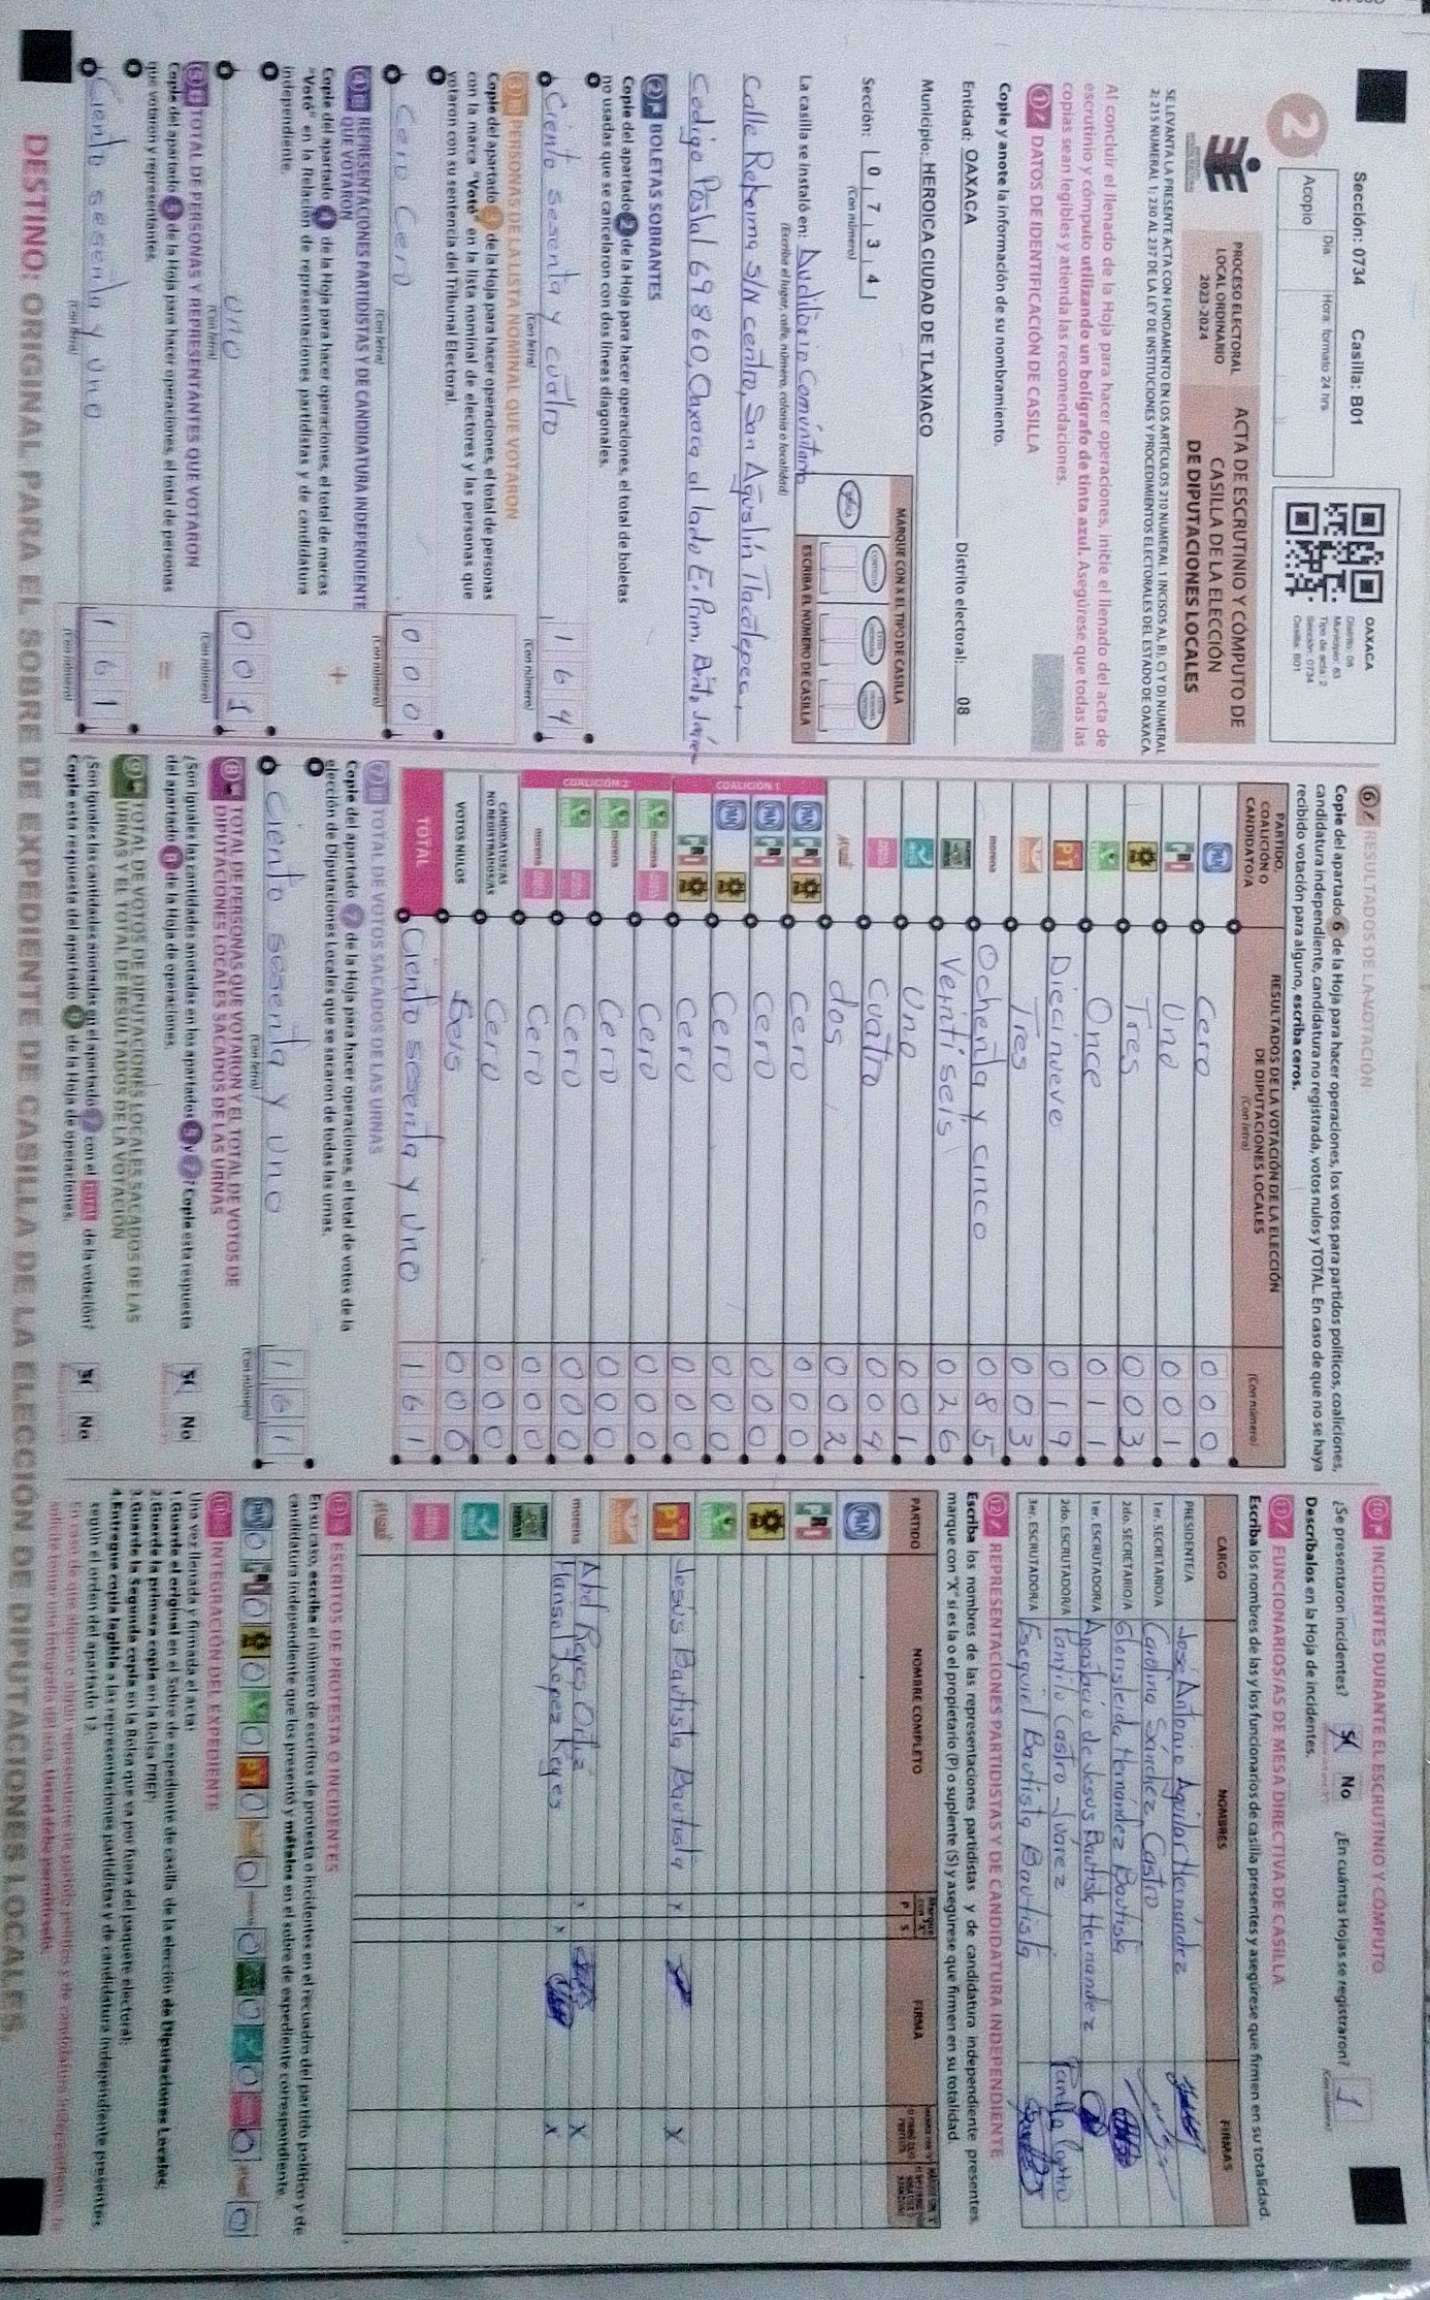 Sección: 0734 Casilla: B01
Día
Hora: formato 24 hrs
Acopio
2
OAXACA
Distrito: 08
Municipio: 83
Tipo de acta: 2
Sección: 0734
Casilla: B01
PROCESO ELECTORAL
LOCAL ORDINARIO
2023-2024
ACTA DE ESCRUTINIO Y CÓMPUTO DE
CASILLA DE LA ELECCIÓN
DE DIPUTACIONES LOCALES
SE LEVANTA LA PRESENTE ACTA CON FUNDAMENTO EN LOS ARTÍCULOS 210 NUMERAL 1 INCISOS A), B), C) Y D) NUMERAL
2; 215 NUMERAL 1; 230 AL 237 DE LA LEY DE INSTITUCIONES Y PROCEDIMIENTOS ELECTORALES DEL ESTADO DE OAXACA.
Al concluir el llenado de la Hoja para hacer operaciones, inicie el llenado del acta de
escrutinio y cómputo utilizando un bolígrafo de tinta azul. Asegúrese que todas las
copias sean legibles y atienda las recomendaciones.
1 DATOS DE IDENTIFICACIÓN DE CASILLA
Copie y anote la información de su nombramiento.
Entidad: OAXACA Distrito electoral: 08
Municipio: HEROICA CIUDAD DE TLAXIACO
Sección: 0 7 3 4
(Con número)
MARQUE CON X EL TIPO DE CASILLA
ESCRIBA EL NÚMERO DE CASILLA
La casilla se instaló en: Auditorio Comunitario
(Escriba el lugar, calle, número, colonia o localidad)
Calle Reforma S/N centro, San Agustín Tlacotepec,
Codigo Postal 69860, Oaxaca al lado
2 BOLETAS SOBRANTES
Copie del apartado 2 de la Hoja para hacer operaciones, el total de boletas
no usadas que se cancelaron con dos líneas diagonales.
Ciento sesenta y cuatro 1 6 4
(Con letra) (Con número)
3 PERSONAS DE LA LISTA NOMINAL QUE VOTARON
Copie del apartado 3 de la Hoja para hacer operaciones, el total de personas
con la marca "Votó" en la lista nominal de electores y las personas que
votaron con su sentencia del Tribunal Electoral.
Cero Cero 0 0 0
(Con letra) (Con número)
4 REPRESENTACIONES PARTIDISTAS Y DE CANDIDATURA INDEPENDIENTE
QUE VOTARON
Copie del apartado 4 de la Hoja para hacer operaciones, el total de marcas
"Votó" en la Relación de representaciones partidistas y de candidatura
independiente.
+
uno 0 0 1
(Con letra) (Con número)
5 TOTAL DE PERSONAS Y REPRESENTANTES QUE VOTARON
Copie del apartado 5 de la Hoja para hacer operaciones, el total de personas
que votaron y representantes.
=
Ciento sesenta y uno 1 6 1
(Con letra) (Con número)
6 RESULTADOS DE LA VOTACIÓN
Copie del apartado 6 de la Hoja para hacer operaciones, los votos para partidos políticos, coaliciones,
candidatura independiente, candidatura no registrada, votos nulos y TOTAL. En caso de que no se haya
recibido votación para alguno, escriba ceros.
PARTIDO,
COALICIÓN O
CANDIDATO/A
RESULTADOS DE LA VOTACIÓN DE LA ELECCIÓN
DE DIPUTACIONES LOCALES
(Con letra)
(Con número)
PAN Cero 0 0 0
PRI Uno 0 0 1
PRD Tres 0 0 3
Once 0 1 1
PT Diecinueve 0 1 9
Tres 0 0 3
morena Ochenta y cinco 0 8 5
Veintiseis 0 2 6
Uno 0 0 1
Cuatro 0 0 4
dos 0 0 2
COALICIÓN 1
PAN PRI PRD cero 0 0 0
PAN PRI cero 0 0 0
PAN PRD Cero 0 0 0
PRI PRD cero 0 0 0
COALICIÓN 2
morena Cero 0 0 0
morena Cero 0 0 0
Cero 0 0 0
morena Cero 0 0 0
CANDIDATOS/AS
NO REGISTRADOS/AS Cero 0 0 0
VOTOS NULOS Seis 0 0 6
TOTAL Ciento sesenta y uno 1 6 1
7 TOTAL DE VOTOS SACADOS DE LAS URNAS
Copie del apartado 7 de la Hoja para hacer operaciones, el total de votos de la
elección de Diputaciones Locales que se sacaron de todas las urnas.
Ciento sesenta y uno 1 6 1
(Con letra) (Con número)
8 TOTAL DE PERSONAS QUE VOTARON Y EL TOTAL DE VOTOS DE
DIPUTACIONES LOCALES SACADOS DE LAS URNAS
¿Son iguales las cantidades anotadas en los apartados 5 y 7? Copie esta respuesta
del apartado 8 de la Hoja de operaciones.
Sí No
9 TOTAL DE VOTOS DE DIPUTACIONES LOCALES SACADOS DE LAS
URNAS Y EL TOTAL DE RESULTADOS DE LA VOTACIÓN
¿Son iguales las cantidades anotadas en el apartado 7 con el TOTAL de la votación?
Copie esta respuesta del apartado 9 de la Hoja de operaciones.
Sí No
10 INCIDENTES DURANTE EL ESCRUTINIO Y CÓMPUTO
¿Se presentaron incidentes? Sí No ¿En cuántas Hojas se registraron? 1
Descríbalos en la Hoja de incidentes.
11 FUNCIONARIOS/AS DE MESA DIRECTIVA DE CASILLA
Escriba los nombres de las y los funcionarios de casilla presentes y asegúrese que firmen en su totalidad.
CARGO NOMBRES FIRMAS
PRESIDENTE/A José Antonio Aguilar Hernández
1er. SECRETARIO/A Carolina Sánchez Castro
2do. SECRETARIO/A Glorisleida Hernández Bautista
1er. ESCRUTADOR/A Anastacio de Jesus Bautista Hernandez
2do. ESCRUTADOR/A Panfilo Castro Juarez
3er. ESCRUTADOR/A Esequiel Bautista Bautista
12 REPRESENTACIONES PARTIDISTAS Y DE CANDIDATURA INDEPENDIENTE
Escriba los nombres de las representaciones partidistas y de candidatura independiente presentes,
marque con "X" si es la o el propietario (P) o suplente (S) y asegúrese que firmen en su totalidad.
PARTIDO NOMBRE COMPLETO P S FIRMA
PAN
PRI
PRD
PT Jesús Bautista Bautista X X
morena Abel Reyes Ortiz X
Hansel Lopez Reyes X X
13 ESCRITOS DE PROTESTA O INCIDENTES
En su caso, escriba el número de escritos de protesta o incidentes en el recuadro del partido político y de
candidatura independiente que los presentó y métalos en el sobre de expediente correspondiente.
PAN 0 PRI 0 0 0 PT 0 0 0 0 0 0 0
14 INTEGRACIÓN DEL EXPEDIENTE
Una vez llenada y firmada el acta:
1. Guarde el original en el Sobre de expediente de casilla de la elección de Diputaciones Locales;
2. Guarde la primera copia en la Bolsa PREP;
3. Guarde la Segunda copia en la Bolsa que va por fuera del paquete electoral;
4. Entregue copia legible a las representaciones partidistas y de candidatura independiente presentes
según el orden del apartado 12.
DESTINO: ORIGINAL PARA EL SOBRE DE EXPEDIENTE DE CASILLA DE LA ELECCIÓN DE DIPUTACIONES LOCALES.